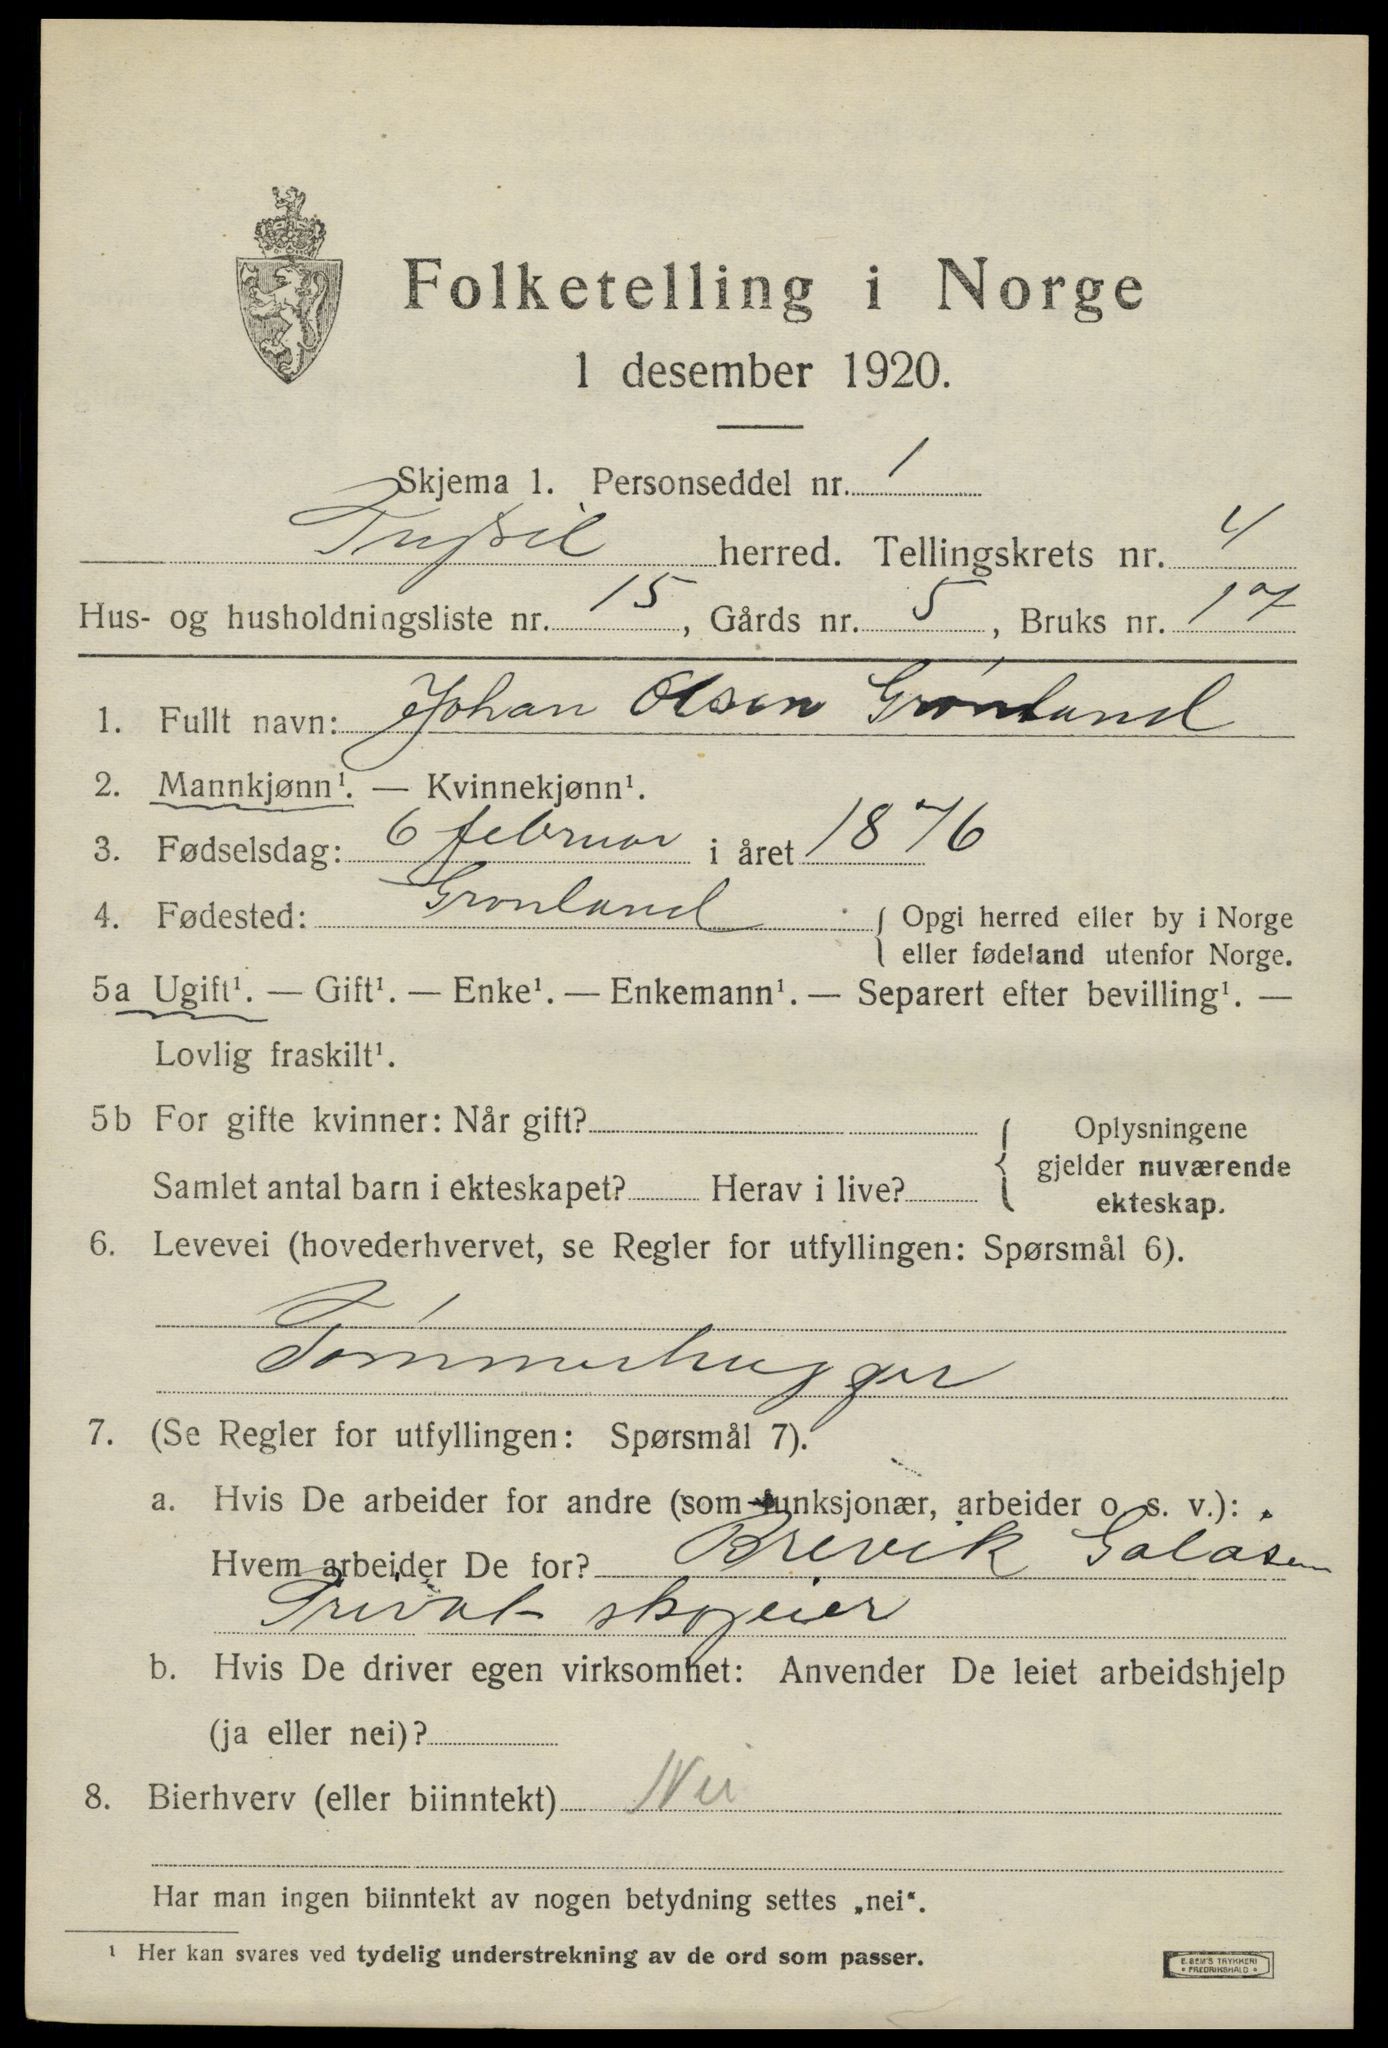 Folketelling i Norge
1 desember 1920.
Skjema 1. Personseddel nr. 1
Trysil herred. Tellingskrets nr. 4
Hus- og husholdningsliste nr. 15, Gårds nr. 5, Bruks nr. 17
1. Fullt navn: Johan Olsen Grönland
2. Mannkjønn¹. — Kvinnekjønn¹.
3. Fødselsdag: 6 februar i året 1876
4. Fødested: Gronland { Opgi herred eller by i Norge
eller fødeland utenfor Norge.
5a Ugift¹. — Gift¹. — Enke¹. — Enkemann¹. — Separert efter bevilling¹. —
Lovlig fraskilt¹.
5b For gifte kvinner: Når gift? { Oplysningene
gjelder nuværende
ekteskap.
Samlet antal barn i ekteskapet? Herav i live?
6. Levevei (hovederhvervet, se Regler for utfyllingen: Spørsmål 6).
Tömmerhugger
7. (Se Regler for utfyllingen: Spørsmål 7).
a. Hvis De arbeider for andre (som funksjonær, arbeider o. s. v.):
Hvem arbeider De for? Brevik Galåsen
Privat skogeier
b. Hvis De driver egen virksomhet: Anvender De leiet arbeidshjelp
(ja eller nei)?
8. Bierhverv (eller biinntekt) Nei
Har man ingen biinntekt av nogen betydning settes „nei“.
¹ Her kan svares ved tydelig understrekning av de ord som passer.
E. SEM'S TRYKKERI
• FREDRIKSHALD •